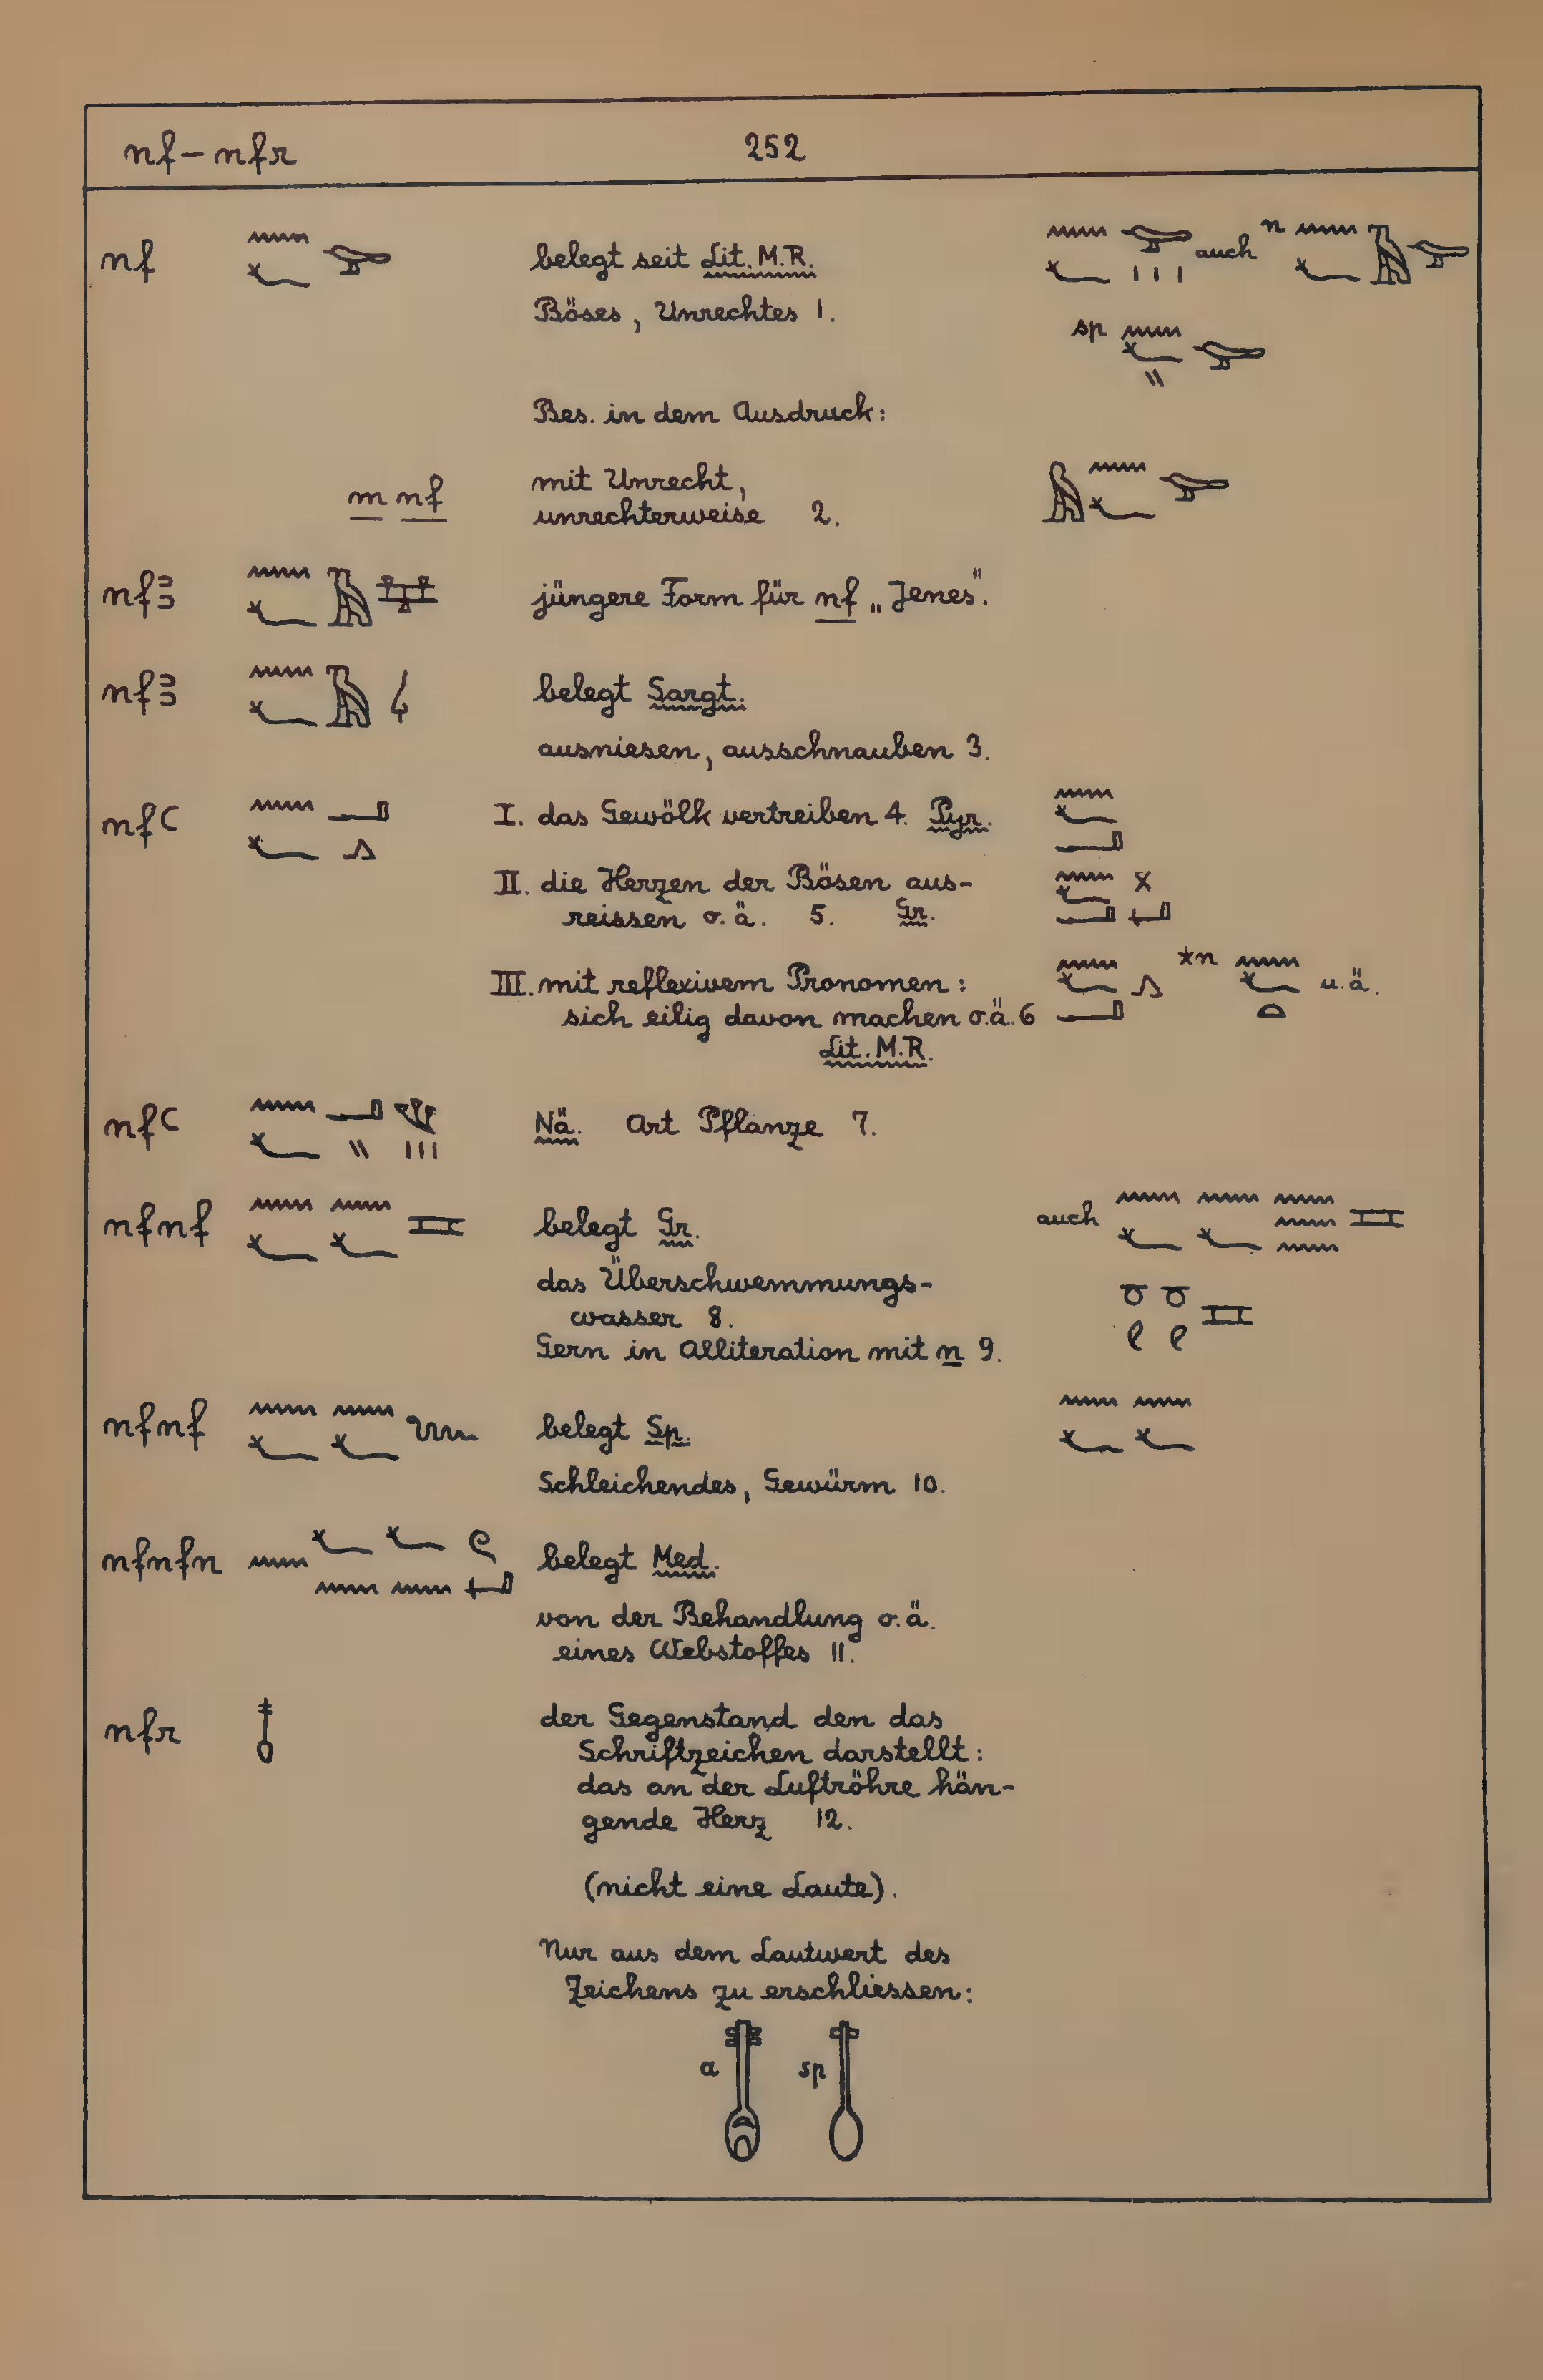 nf – nfr 252
nf 𓈖𓆑𓅪 belegt seit Lit. M.R. 𓈖𓆑𓅪𓏥 auch n 𓈖𓆑𓄿𓅪
Böses, Unrechtes 1. sp 𓈖𓆑𓏭𓅪
Bes. in dem Ausdruck:
m nf mit Unrecht, 𓅓𓈖𓆑𓅪
unrechterweise 2.
nfꜣ 𓈖𓆑𓄿 jüngere Form für nf „Jenes".
nfꜣ 𓈖𓆑𓄿 belegt Sargt.
ausniesen, ausschnauben 3.
nfꜥ 𓈖𓆑𓂝𓂻 I. das Gewölk vertreiben 4. Pyr. 𓈖𓆑𓂝
II. die Herzen der Bösen aus- 𓈖𓆑𓂝𓏴𓂡
reissen o.ä. 5. Gr.
III. mit reflexivem Pronomen: 𓈖𓆑𓂝𓂻 *n 𓈖𓆑𓏏 u.ä.
sich eilig davon machen o.ä. 6
Lit. M.R.
nfꜥ 𓈖𓆑𓂝𓏭𓆰𓏥 Nä. Art Pflanze 7.
nfnf 𓈖𓆑𓈖𓆑𓈘 belegt Gr. auch 𓈖𓆑𓈖𓆑𓈗𓈘
das Überschwemmungs- 𓏌𓏌𓈘
wasser 8.
Gern in Alliteration mit n 9.
nfnf 𓈖𓆑𓈖𓆑𓆙 belegt Sp. 𓈖𓆑𓈖𓆑
Schleichendes, Gewürm 10.
nfnfn 𓈖𓆑𓈖𓆑𓈖𓏲𓂡 belegt Med.
von der Behandlung o.ä.
eines Webstoffes 11.
nfr 𓄤 der Gegenstand den das
Schriftzeichen darstellt:
das an der Luftröhre hän-
gende Herz 12.
(nicht eine Laute).
Nur aus dem Lautwert des
Zeichens zu erschliessen:
a 𓄤 sp 𓄤